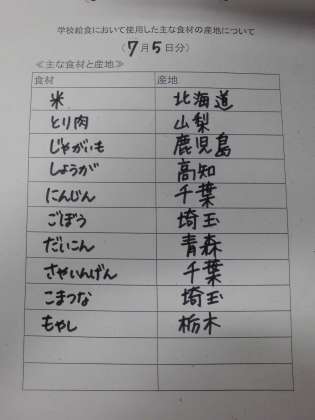 学校給食において使用した主な食材の産地について
（7月5日分）
≪主な食材と産地≫
食材 産地
米 北海道
とり肉 山梨
じゃがいも 鹿児島
しょうが 高知
にんじん 千葉
ごぼう 埼玉
だいこん 青森
さやいんげん 千葉
こまつな 埼玉
もやし 栃木